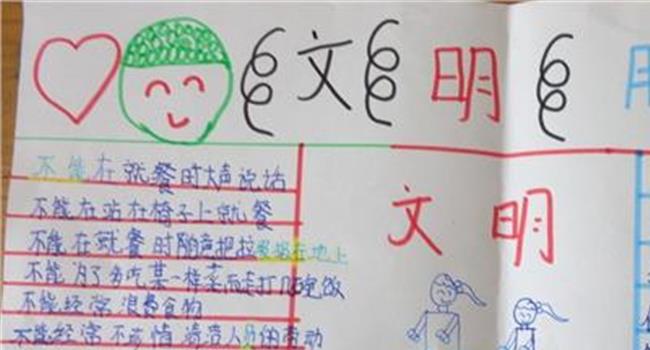 文 明
不能在就餐时大声说话
不能在站在椅子上就餐
不能在就餐时随声把垃圾掉在地上
不能为了多吃某一样菜而走打几碗饭
不能经常浪费食物
不能经常不珍惜清洁人员的劳动
文 明